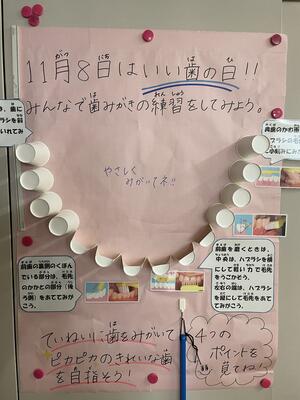 11月8日はいい歯の日!!
みんなで歯みがきの練習をしてみよう。
やさしく
みがいてネ!!
前歯の裏側のくぼん
でいる部分は、毛先
のかかとの部分(後
ろ側)をあててみが
こう。
前歯を磨くときは、
中央は、ハブラシを横
にして軽い力で毛先
をうごかそう。
左右の端は、ハブラシ
を縦にして毛先をあてて
みがこう。
ていねいに歯をみがいて
ピカピカのきれいな歯
を目指そう!
4つの
ポイントを
見てね!